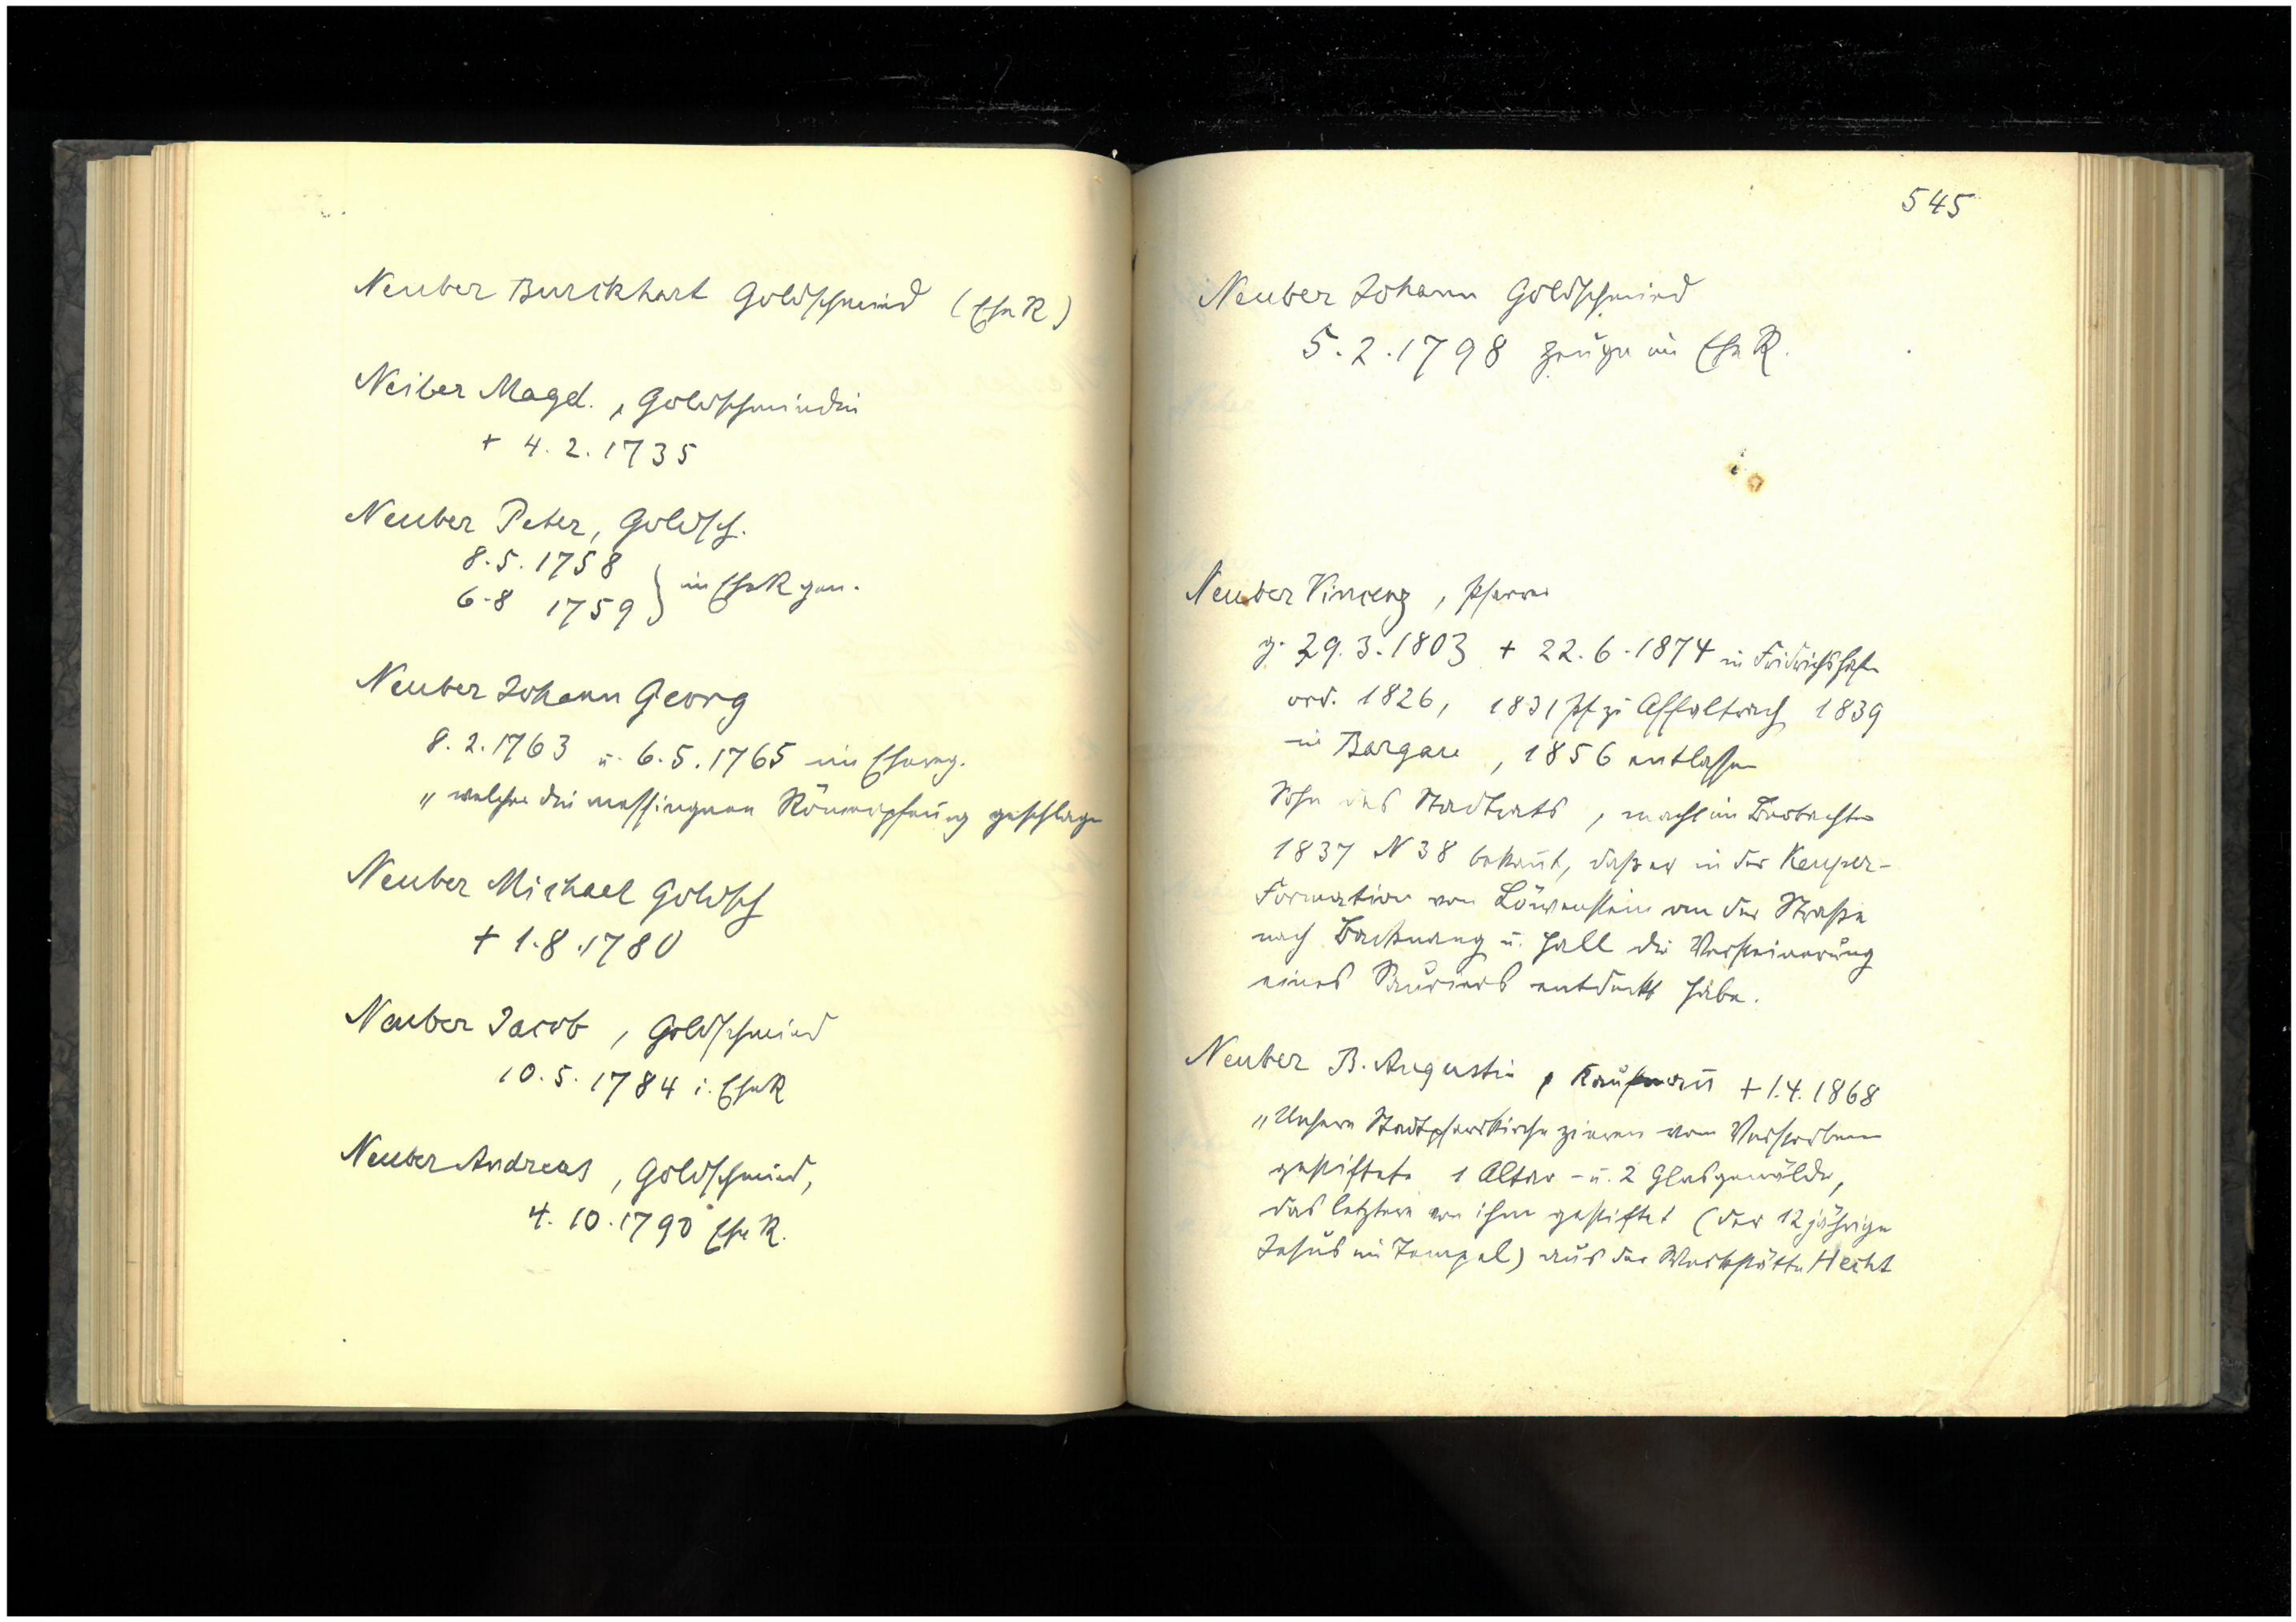 Neuber Burckhart Goldschmied (EheR)
Neiber Magd., Goldschmiedin
+ 4.2.1735
Neuber Peter, Goldsch.
8.5.1758
6.8 1759 } im EheR gen.
Neuber Johann Georg
8.2.1763 u. 6.5.1765 im Ehereg.
„ welcher die messingnen geschlagen
Neuber Michael Goldsch
+ 1.8.1780
Neuber Jacob, Goldschmied
10.5.1784 i. EheR
Neuber Andreas, Goldschmied,
4.10.1790 EheR.
545
Neuber Johann Goldschmied
5.2.1798 Zeuge im EheR.
Neuber Vincenz, Pfarrer
g. 29.3.1803 + 22.6.1874 in Fridrichshafen
ord. 1826, 1831 Pf zu Affaltrach 1839
in Bargau, 1856 entlassen
Sohn des Stadtrats, macht im Beobachter
1837 N 38 bekannt, daß er in der Keuper-
Formation von Löwenstein an der Straße
nach Backnang u. Hall die Versteinerung
eines Sauriers entdeckt habe.
Neuber B. Augustin, Kaufmann + 1.4.1868
„Unsere Stadtpfarrkirche zieren vom Verstorbenen
gestiftete 1 Altar - u. 2 Glasgemälde,
das letztere von ihm gestiftet (der 12 jährige
Jesus im Tempel) aus der Werkstätte Hecht